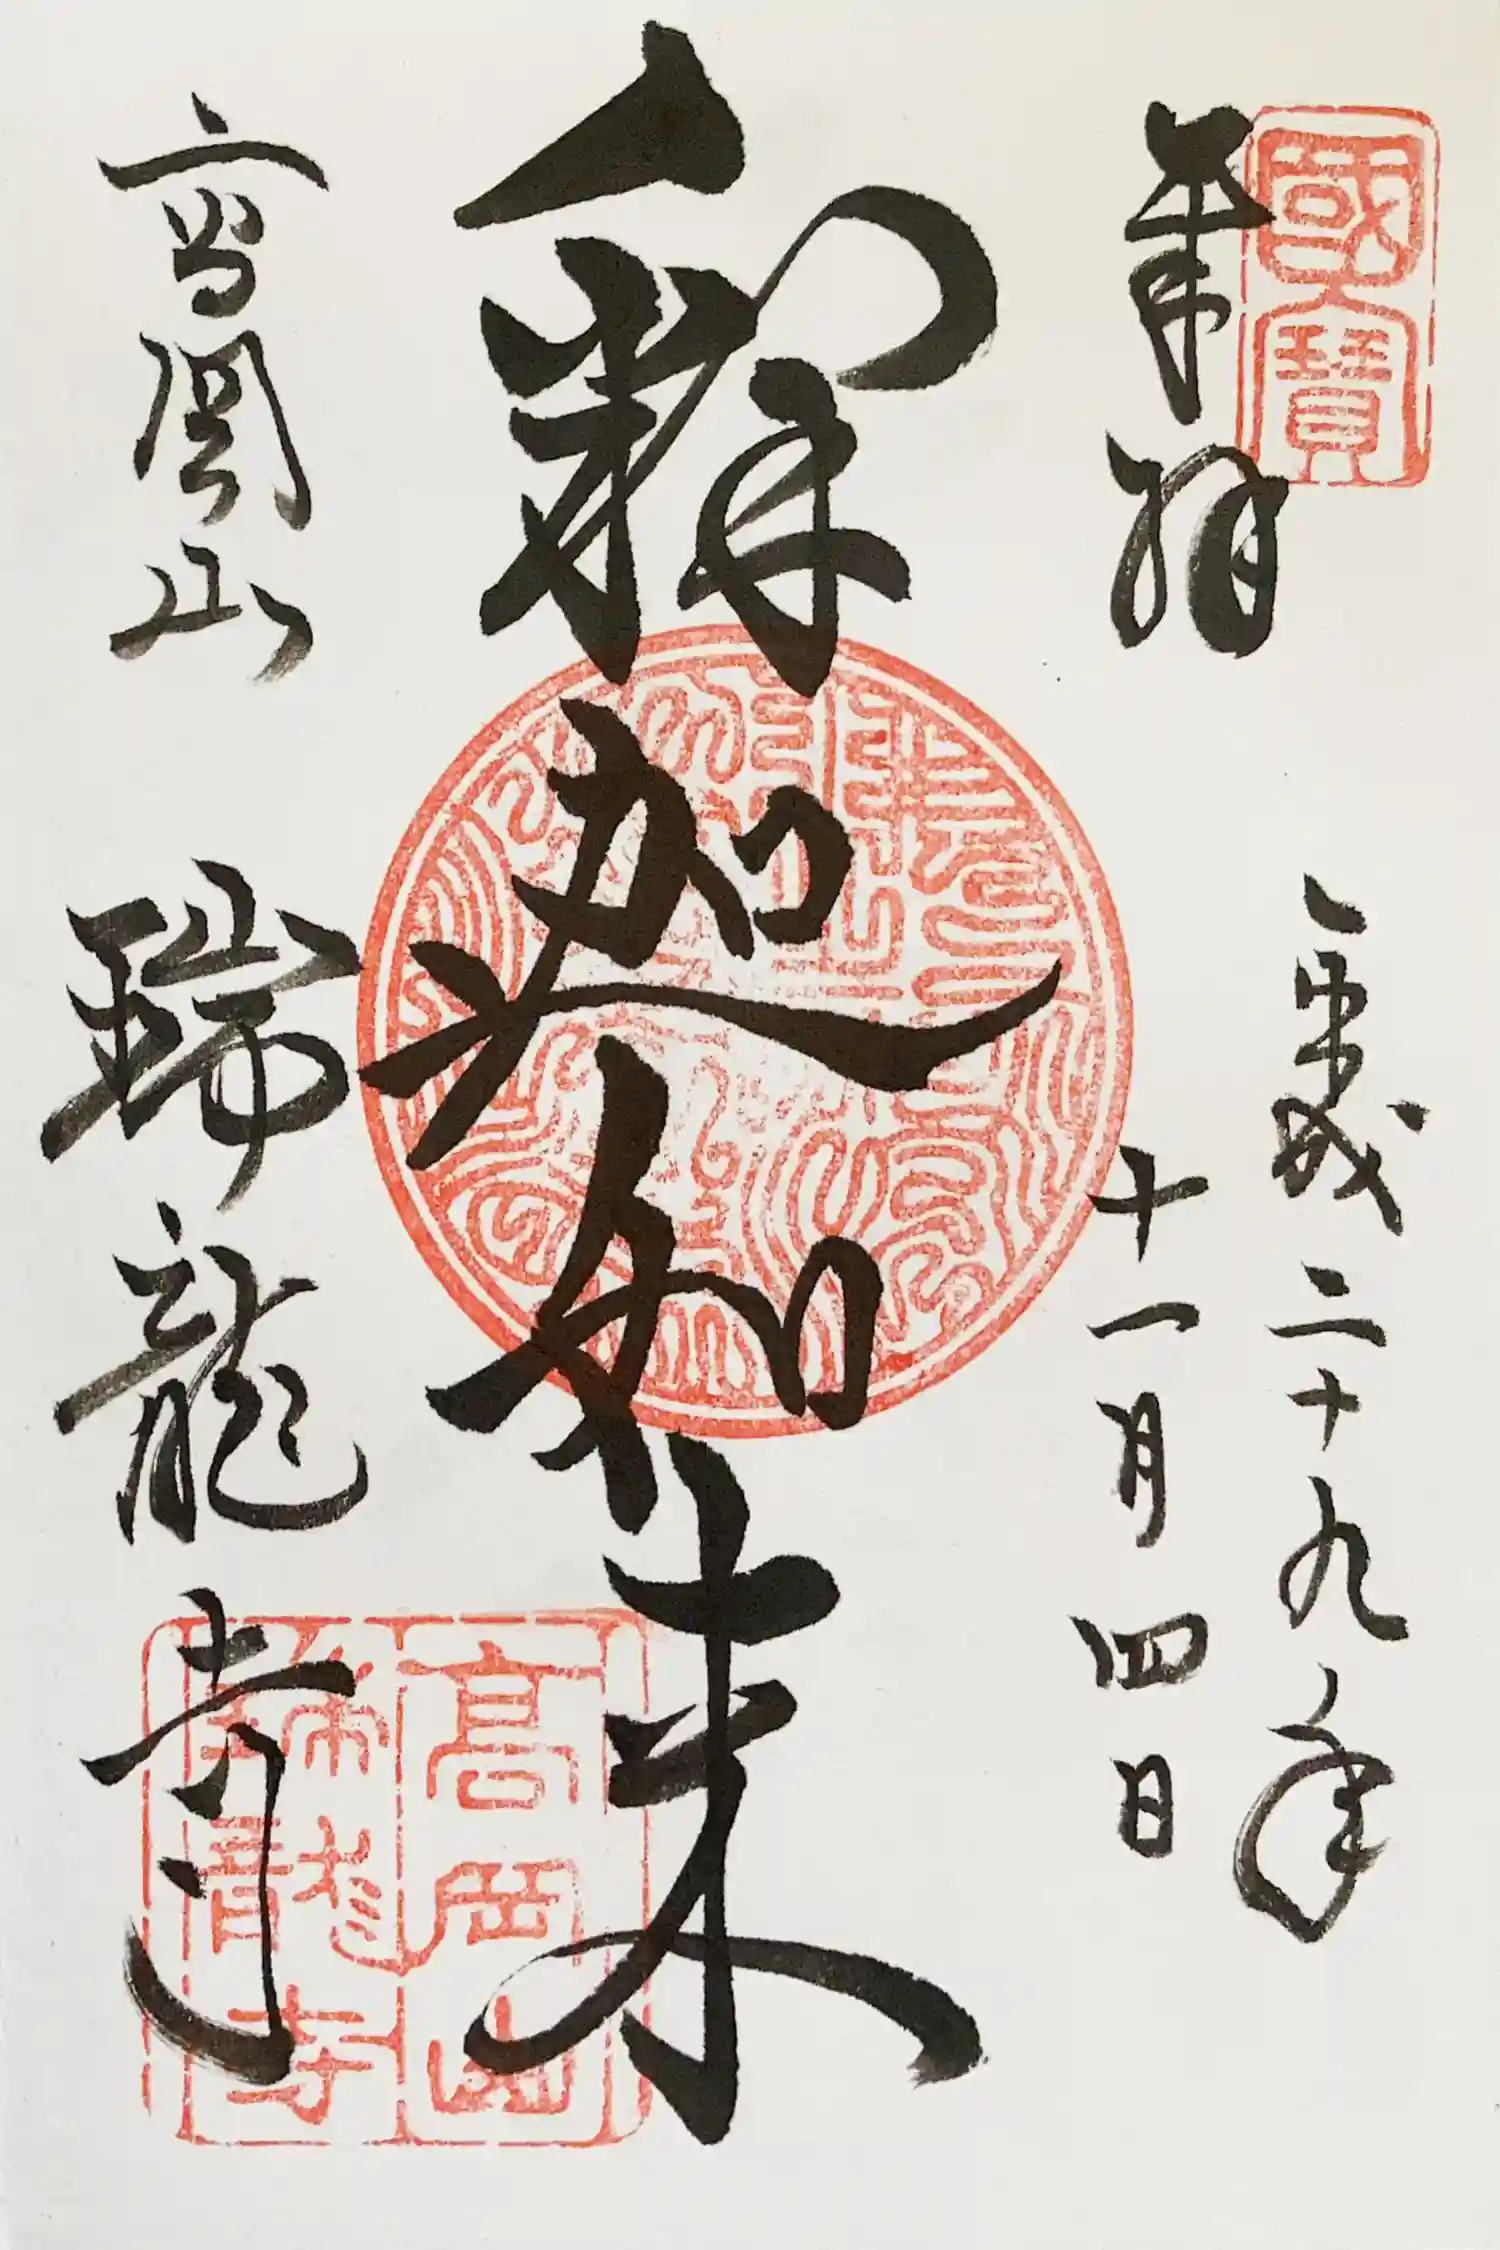 國寶
奉拝
平成二十九年
十一月四日
釈迦如来
高岡山
瑞龍寺
高岡山
瑞龍寺